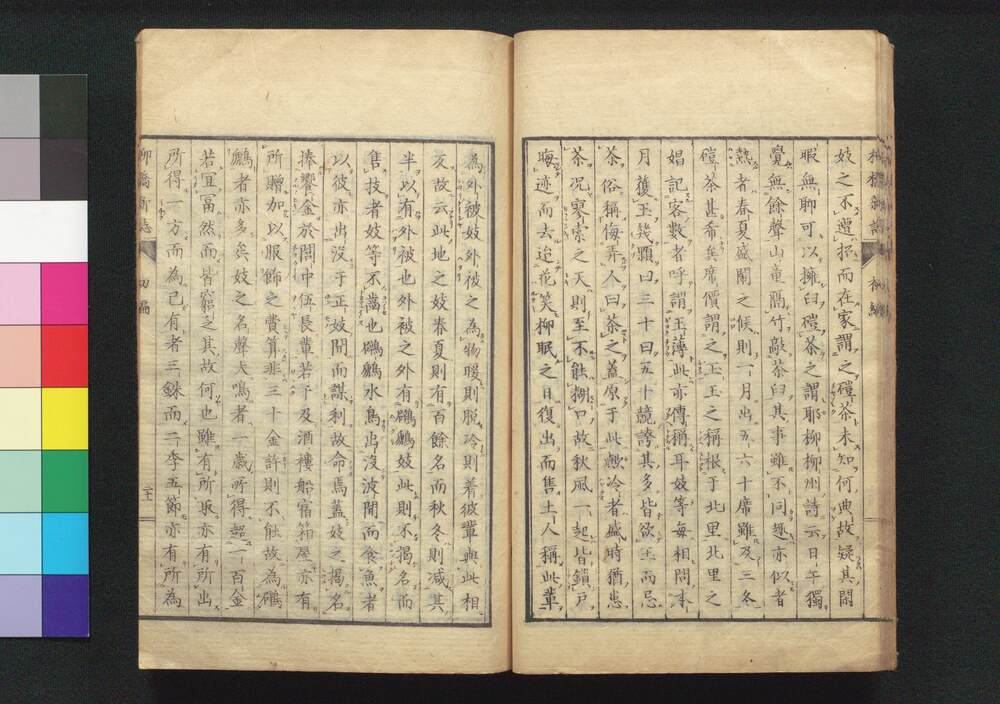 妓之不遭招而在家謂之磑茶未知何典故疑其閑
暇無聊可以擁臼磑茶之謂耶柳柳州詩云日午獨
覺無餘聲山童隔竹敲茶臼其事雖不同趣亦似者
熱者春夏盛閙之候則一月出五六十席雖及三冬
磑茶甚希矣席價謂之玉玉之稱根于北里北里之
娼記客數者呼謂玉薄此亦傳稱耳妓等每相問本
月獲玉幾顆曰三十曰五十競誇其多皆欲玉而忌
茶俗稱侮弄人曰茶之蓋原于此歟冷者盛時猶患
茶况寥索之天則至不能糊口故秋風一起皆鎖戶
晦迹而去迨花笑柳眠之日復出而售土人稱此輩
為外被妓外被之為物暖則脫冷則着彼輩與此相
反故云此地之妓春夏則有百餘名而秋冬則減其
半以有外被也外被之外有鸊鷉妓此則不揭名而
售技者妓等不齒也鸊鷉水鳥出沒波間而食魚者
以彼亦出沒于正妓間而謀利故命焉蓋妓之揭名
捧饗金於閤中伍長輩若干及酒樓船宿箱屋亦有
所贈加以服飾之費算非三十金許則不能故為鸊
鷉者亦多矣妓之名聲大鳴者一歲所得超一百金
若宜富然而皆窮之其故何也雖有所取亦有所出
所得一方而為己有者三銖而二李五節亦有所為
柳橋新誌 初編